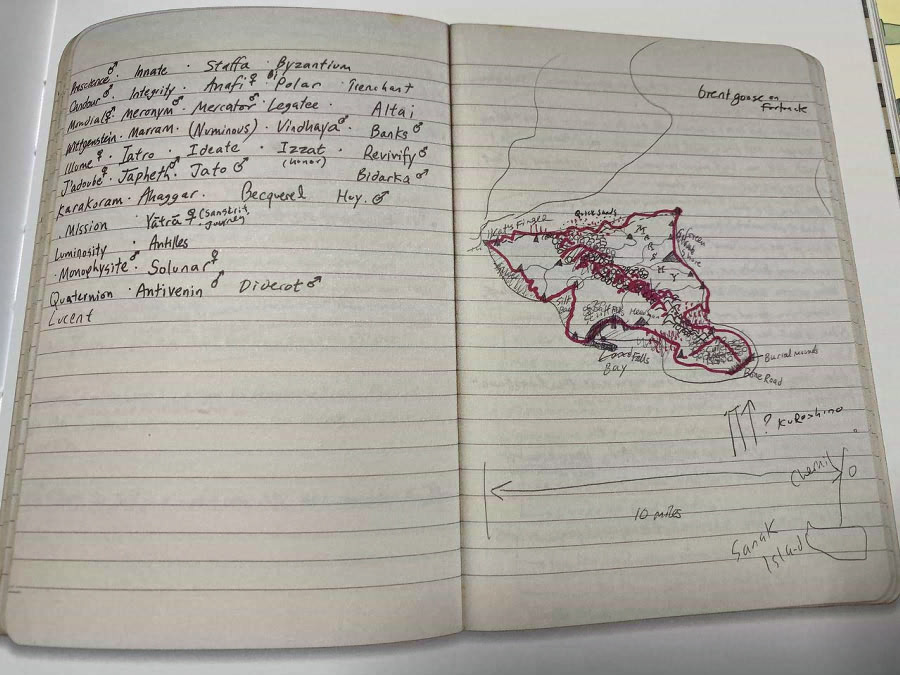 Prescience ♂ · Innate · Staffa · Byzantium
Candour ♂ · Integrity · Anafi ♀ · Polar · Trenchant
Mondial ♀ · Meronym ♂ · Mercator ♂ · Legatee · Altai
Wittgenstein · Marram · (Numinous) · Vindhaya ♂ · Banks ♂
Illume ♀ · Iatro · Ideate · Izzat (honor) · Revivify ♂
J'adoube ♀ · Japheth ♂ · Jato ♂ Bidarka ♂
Karakoram · Ahaggar · Becquerel Huy ♂
Mission Yātrā ♀ (Sanskrit, journey)
Luminosity · Antilles
· Monophysite ♂ · Solunar ♀
Quaternion · Antivenin ♂ Diderot ♂
Lucent
brent goose on
Finger
Quicksands
Green
Silt
Bay
Falls
Bay
Burial mounds
Bone Road
? Kuroshio
10 miles
Sanak
Island